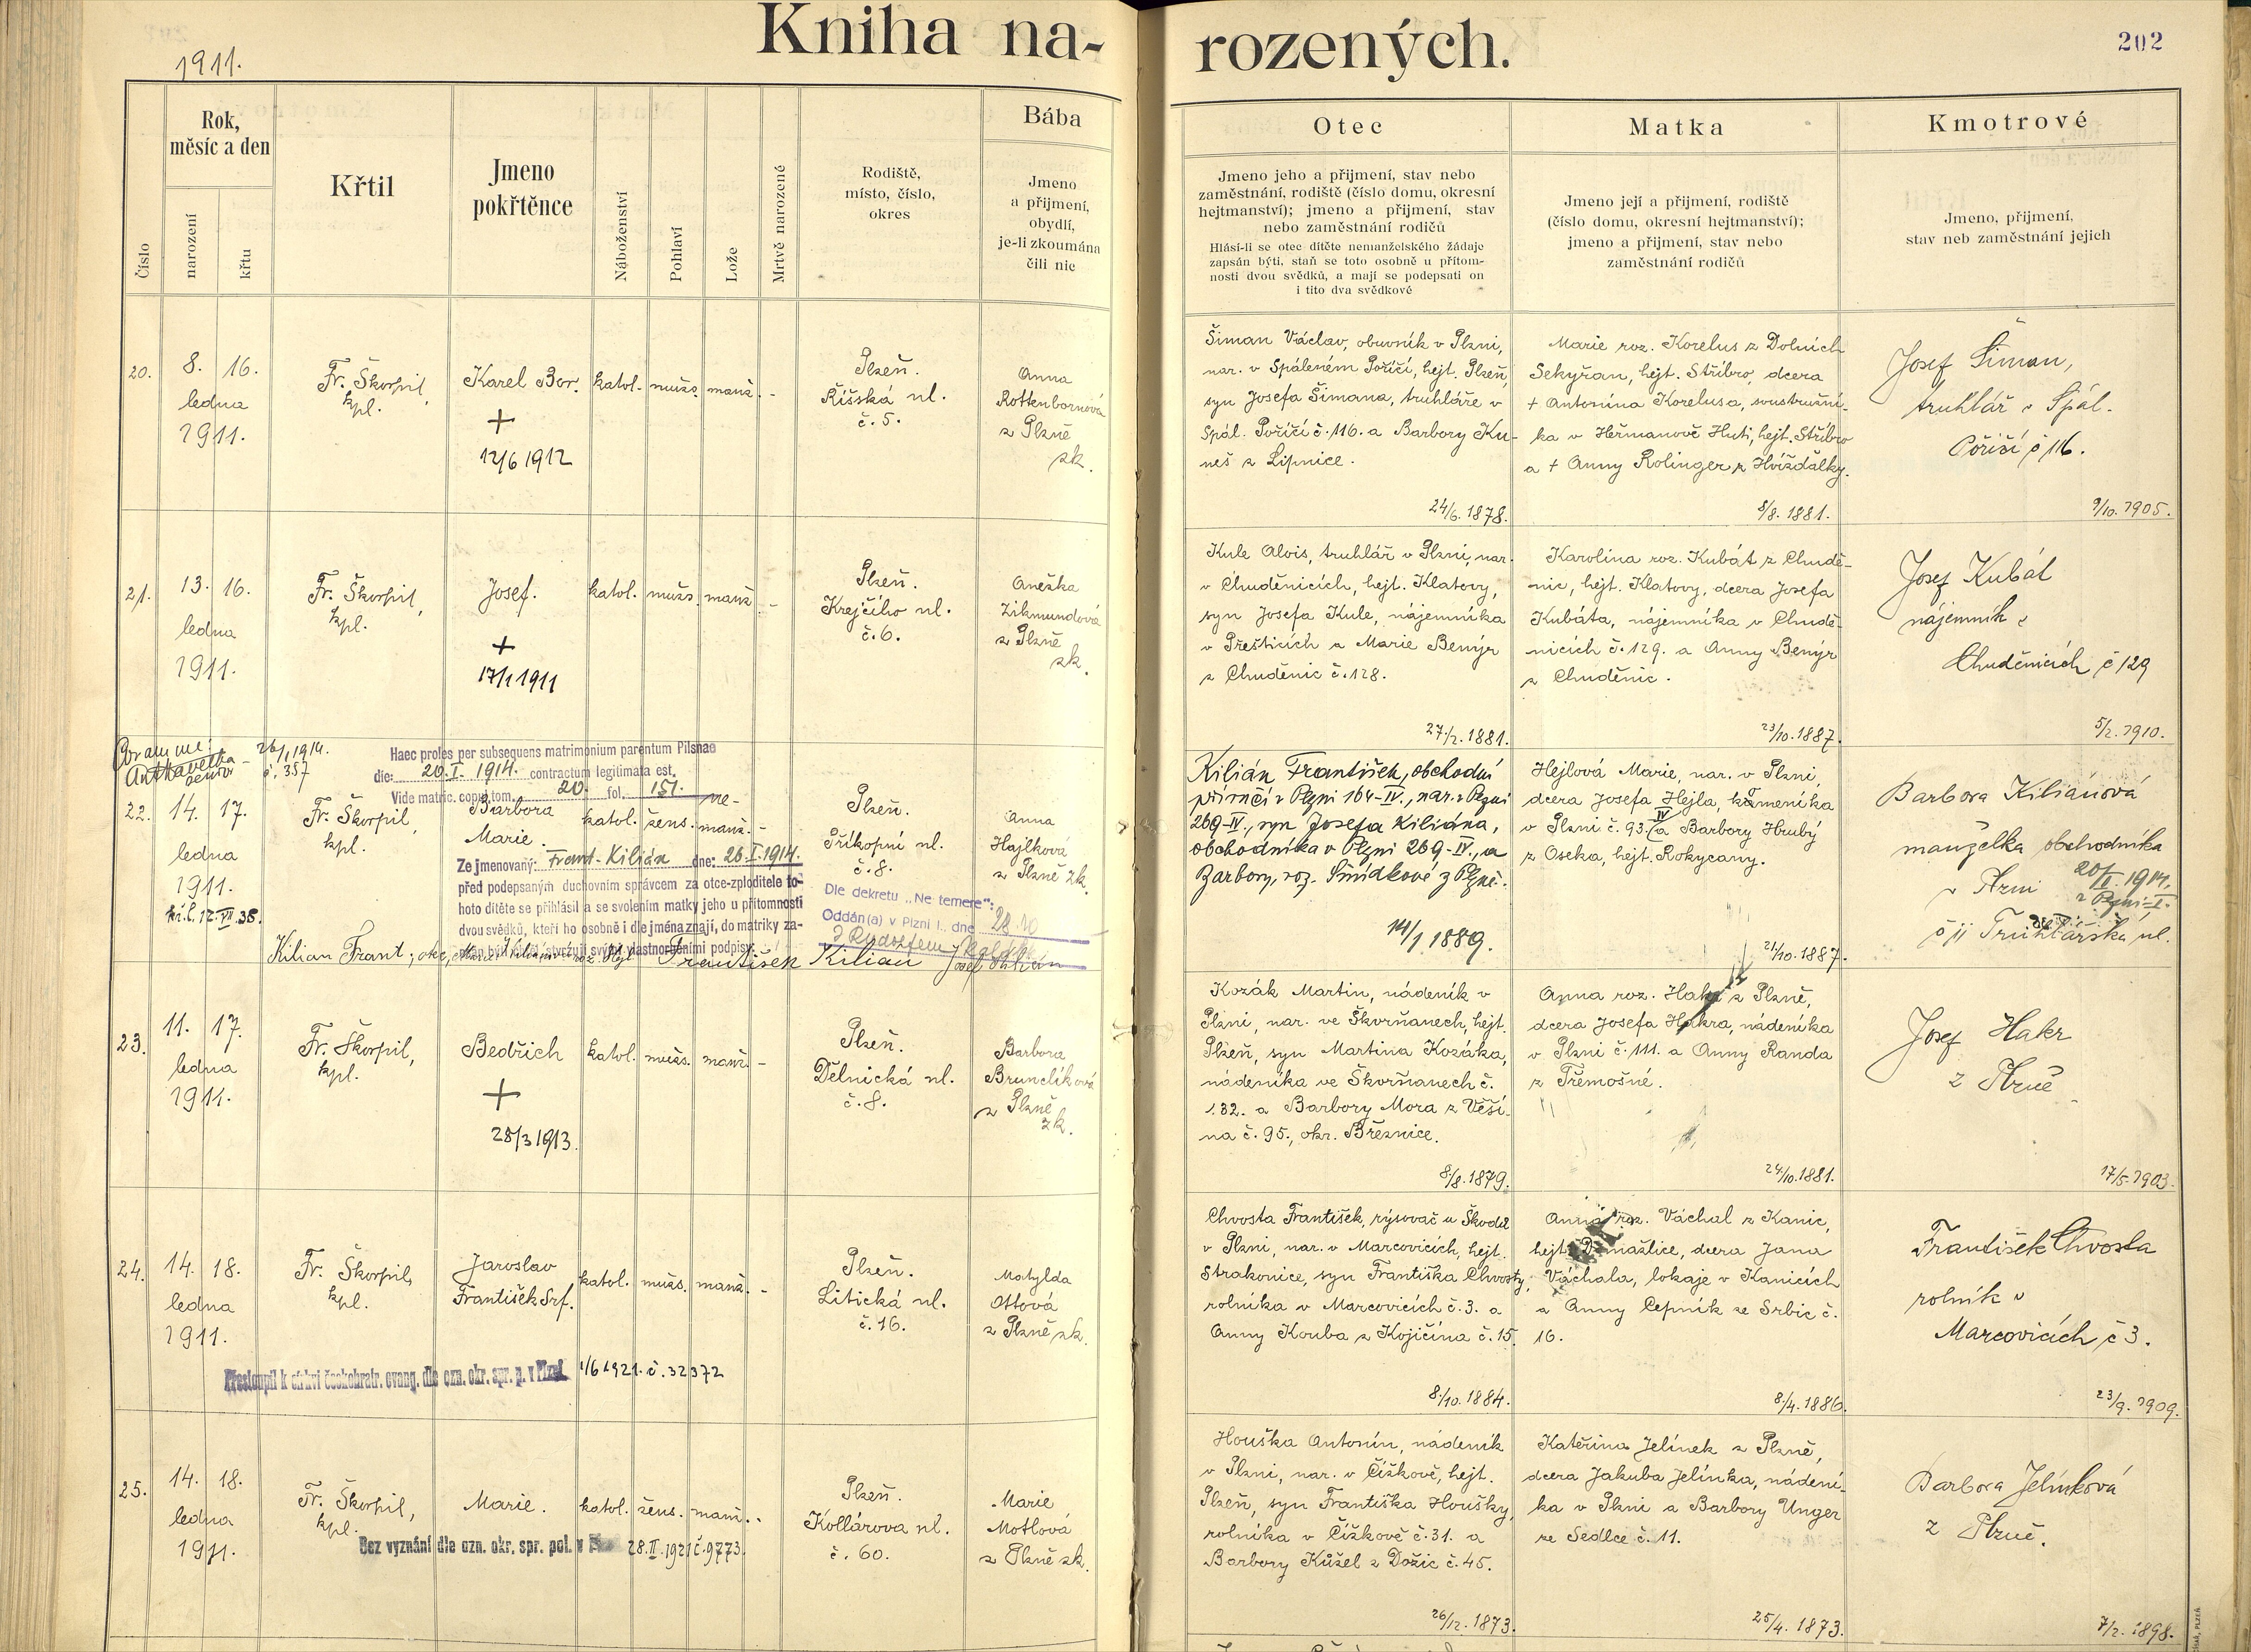 Kniha na-
rozených.
202
1911.
Číslo
Rok,
měsíc a den
narození
křtu
Křtil
Jmeno
pokřtěnce
Náboženství
Pohlaví
Lože
Mrtvě narozené
Rodiště,
místo, číslo,
okres
Bába
Jmeno
a přijmení,
obydlí,
je-li zkoumána
čili nic
Otec
Jmeno jeho a přijmení, stav nebo
zaměstnání, rodiště (číslo domu, okresní
hejtmanství); jmeno a přijmení, stav
nebo zaměstnání rodičů
Hlásí-li se otec dítěte nemanželského žádaje
zapsán býti, staň se toto osobně u přítom-
nosti dvou svědků, a mají se podepsati on
i tito dva svědkové
Matka
Jmeno její a přijmení, rodiště
(číslo domu, okresní hejtmanství);
jmeno a přijmení, stav nebo
zaměstnání rodičů
Kmotrové
Jmeno, přijmení,
stav neb zaměstnání jejich
20.
8. 16.
ledna
1911.
Fr. Škorpil,
kpl.
Karel Bor.
+
12/6 1912
katol. mužs. manž. -
Plzeň.
Říšská ul.
č. 5.
Anna
Rottenbornová
z Plzně
zk.
Šiman Václav, obuvník v Plzni,
nar. v Spáleném Poříčí, hejt. Plzeň,
syn Josefa Šimana, truhláře v
Spál. Poříčí č. 116. a Barbory Ku-
neš z Lipnice.
24/6. 1878.
Marie roz. Korelus z Dolních
Sekyřan, hejt. Stříbro, dcera
+ Antonína Korelusa, soustružní-
ka v Heřmanově Huti, hejt. Stříbro
a + Anny Rolinger z Hvížďalky.
8/8. 1881.
Josef Šiman,
truhlář v Spál.
Poříčí č 116.
9/10. 1905.
21.
13. 16.
ledna
1911.
Fr. Škorpil,
kpl.
Josef.
+
17/1 1911
katol. mužs. manž. -
Plzeň.
Krejčího ul.
č. 6.
Anežka
Zikmundová
z Plzně
zk.
Kule Alois, truhlář v Plzni, nar.
v Chuděnicích, hejt. Klatovy,
syn Josefa Kule, nájemníka
v Přešticích a Marie Benýr
z Chuděnic č. 128.
27/2. 1881.
Karolina roz. Kubát z Chudě-
nic, hejt. Klatovy, dcera Josefa
Kubáta, nájemníka v Chudě-
nicích č. 129. a Anny Benýr
z Chuděnic.
23/10. 1887.
Josef Kubát
nájemník v
Chuděnicích č 129
5/2. 1910.
26/1 1914.
č. 357
Haec proles per subsequens matrimonium parentum Pilsnae
die: 20. I. 1914. contractum legitimata est.
Vide matric. copul. tom. 20. fol. 151.
22.
14. 17.
ledna
1911.
kř. l. 12. VII. 38.
Fr. Škorpil,
kpl.
Barbora
Marie.
katol. žens. ne-
manž. -
Ze jmenovaný: Frant. Kilián dne: 26. I. 1914.
před podepsaným duchovním správcem za otce-zploditele to-
hoto dítěte se přihlásil a se svolením matky jeho u přítomnosti
dvou svědků, kteří ho osobně i dle jména znají, do matriky za-
Kilian Frant., otec,
František Kilian
Plzeň.
Příkopní ul.
č. 8.
Dle dekretu „Ne temere":
Oddán(a) v Plzni I., dne 28. 10
Anna
Hajlková
z Plzně zk.
Kilián František, obchodní
příručí v Plzni 164-IV., nar. v Plzni
269-IV., syn Josefa Kiliána,
obchodníka v Plzni 269-IV., a
Barbory, roz. Šmídkové z Plzně.
14/1 1889.
Hejlová Marie, nar. v Plzni,
dcera Josefa Hejla, kameníka
v Plzni č. 93. IV a Barbory Hrubý
z Oseka, hejt. Rokycany.
21/10. 1887.
Barbora Kiliánová
manželka obchodníka
v Plzni
č 11 Truhlářská ul.
23.
11. 17.
ledna
1911.
Fr. Škorpil,
kpl.
Bedřich
+
28/3 1913.
katol. mužs. manž. -
Plzeň.
Dělnická ul.
č. 8.
Barbora
Brunclíková
z Plzně
zk.
Kozák Martin, nádeník v
Plzni, nar. ve Škvrňanech, hejt.
Plzeň, syn Martina Kozáka,
nádeníka ve Škvrňanech č.
132. a Barbory Mora z Věší-
na č. 95., okr. Březnice.
8/8. 1879.
Anna roz. Hakr z Plzně,
dcera Josefa Hakra, nádeníka
v Plzni č. 111. a Anny Randa
z Třemošné.
24/10. 1881.
Josef Hakr
z Plzně
17/5. 1903.
24.
14. 18.
ledna
1911.
Fr. Škorpil,
kpl.
Jaroslav
František Srf.
katol. mužs. manž. -
Plzeň.
Litická ul.
č. 16.
Matylda
Ottová
z Plzně zk.
Přestoupil k církvi českobratr. evang. dle ozn. okr. spr. p. v Plzni 1/6 1921. č. 32372
Chvosta František, rýsovač u Škodů
v Plzni, nar. v Marcovicích, hejt.
Strakonice, syn Františka Chvosty,
rolníka v Marcovicích č. 3. a
Anny Kouba z Kojičína č. 15.
8./10. 1884.
Anna roz. Váchal z Kanic,
hejt. Domažlice, dcera Jana
Váchala, lokaje v Kanicích
a Anny Cepník ze Srbic č.
16.
8./4. 1886.
František Chvosta
rolník v
Marcovicích č 3.
23/9. 1909.
25.
14. 18.
ledna
1911.
Fr. Škorpil,
kpl.
Marie.
katol. žens. manž. -
Bez vyznání dle ozn. okr. spr. pol. v Plzni 28. II. 1921 č. 9773.
Plzeň.
Kollárova ul.
č. 60.
Marie
Motlová
z Plzně zk.
Houška Antonín, nádeník
v Plzni, nar. v Čížkově, hejt.
Plzeň, syn Františka Houšky,
rolníka v Čížkově č. 31. a
Barbory Kůžel z Dožic č. 45.
26/12. 1873.
Kateřina Jelínek z Plzně,
dcera Jakuba Jelínka, nádení-
ka v Plzni a Barbory Unger
ze Sedlce č. 11.
25/4. 1873.
Barbora Jelínková
z Plzně.
7/2. 1898.